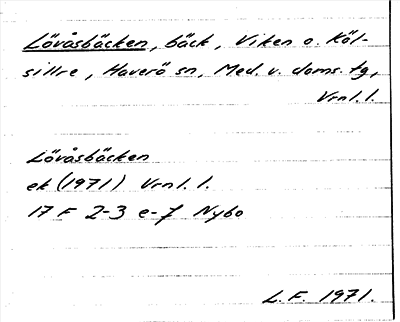 Lövåsbäcken, bäck, Viken o. Köl-
sillre, Haverö sn, Med. v. doms. tg,
Vrnl. l.
Lövåsbäcken
ek (1971) Vrnl. l.
17 F 2-3 e-f Nybo
L. F. 1971.